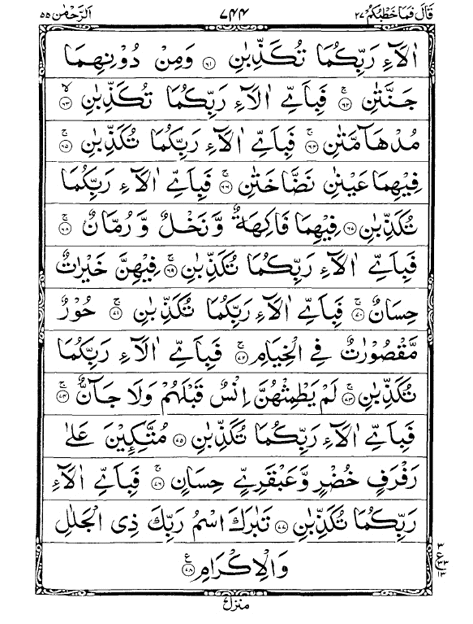 قَالَ فَمَا خَطْبُكُمْ ٢٧ ٧٤٤ اَلرَّحْمٰن ٥٥
اٰلَآءِ رَبِّكُمَا تُكَذِّبٰنِ ﴿٦١﴾ وَمِنْ دُوْنِهِمَا
جَنَّتٰنِ ﴿٦٢﴾ۚ فَبِاَيِّ اٰلَآءِ رَبِّكُمَا تُكَذِّبٰنِ ﴿٦٣﴾ۙ
مُدْهَآمَّتٰنِ ﴿٦٤﴾ۚ فَبِاَيِّ اٰلَآءِ رَبِّكُمَا تُكَذِّبٰنِ ﴿٦٥﴾ۚ
فِيْهِمَا عَيْنٰنِ نَضَّاخَتٰنِ ﴿٦٦﴾ۚ فَبِاَيِّ اٰلَآءِ رَبِّكُمَا
تُكَذِّبٰنِ ﴿٦٧﴾ فِيْهِمَا فَاكِهَةٌ وَّنَخْلٌ وَّرُمَّانٌ ﴿٦٨﴾ۚ
فَبِاَيِّ اٰلَآءِ رَبِّكُمَا تُكَذِّبٰنِ ﴿٦٩﴾ۚ فِيْهِنَّ خَيْرٰتٌ
حِسَانٌ ﴿٧٠﴾ۚ فَبِاَيِّ اٰلَآءِ رَبِّكُمَا تُكَذِّبٰنِ ﴿٧١﴾ۚ حُوْرٌ
مَّقْصُوْرٰتٌ فِى الْخِيَامِ ﴿٧٢﴾ۚ فَبِاَيِّ اٰلَآءِ رَبِّكُمَا
تُكَذِّبٰنِ ﴿٧٣﴾ۚ لَمْ يَطْمِثْهُنَّ اِنْسٌ قَبْلَهُمْ وَلَا جَآنٌّ ﴿٧٤﴾ۚ
فَبِاَيِّ اٰلَآءِ رَبِّكُمَا تُكَذِّبٰنِ ﴿٧٥﴾ مُتَّكِـِٕيْنَ عَلٰى
رَفْرَفٍ خُضْرٍ وَّعَبْقَرِيٍّ حِسَانٍ ﴿٧٦﴾ۚ فَبِاَيِّ اٰلَآءِ
رَبِّكُمَا تُكَذِّبٰنِ ﴿٧٧﴾ تَبٰرَكَ اسْمُ رَبِّكَ ذِى الْجَلٰلِ
وَالْاِكْرَامِ ﴿٧٨﴾
ع
منزل